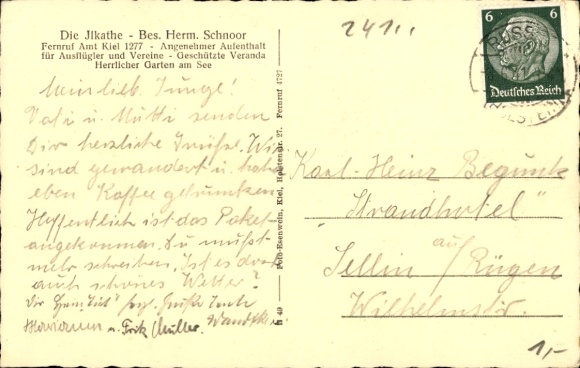 Die Jlkathe - Bes. Herm. Schnoor
Fernruf Amt Kiel 1277 - Angenehmer Aufenthalt
für Ausflügler und Vereine - Geschützte Veranda
Herrlicher Garten am See
Mein lieb. Junge!
Vati u. Mutti senden
Dir herzliche Grüße. Wir
sind gewandert u. haben
eben Kaffee getrunken.
Hoffentlich ist das Paket
angekommen. Du mußt
mehr schreiben. Ist es dort
auch schönes Wetter?
Dir herzl. Grüße Tante
u. Fritz Müller.
Foto-Esenwein, Kiel, Holstenstr. 27. Fernruf 4727
R 49
241..
6 6
Deutsches Reich
Karl-Heinz Begunk
"Strandhotel"
auf
Sellin / Rügen
Wilhelmstr.
1,-